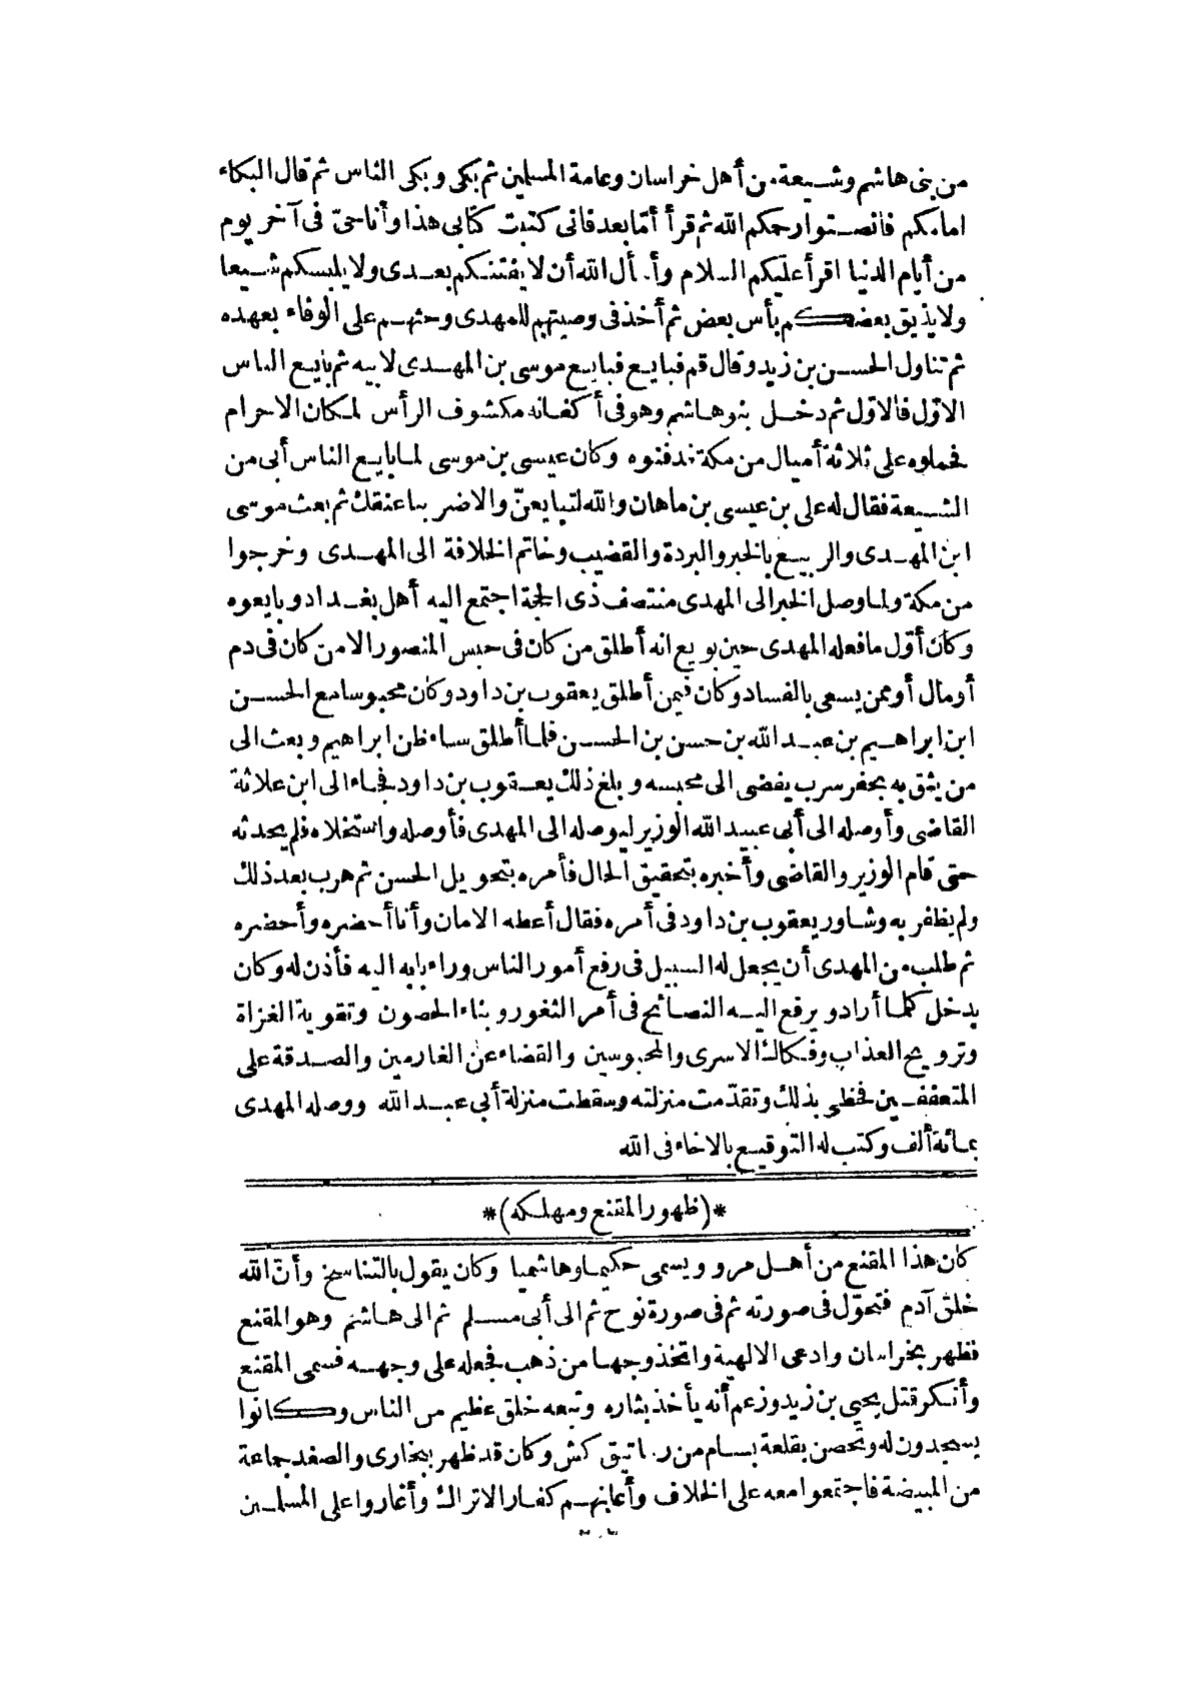 من بنى هاشم وشيعة من أهل خراسان وعامة المسلمين ثم بكى وبكى الناس ثم قال البكاء
امامكم فانصتوا رحمكم الله ثم قرأ أمّا بعد فانى كتبت كتابى هذا وأنا حىّ فى آخر يوم
من أيام الدنيا اقرأ عليكم السلام وأسأل الله أن لا يفتنكم بعدى ولا يلبسكم شيعا
ولا يذيق بعضكم بأس بعض ثم أخذ فى وصيتهم للمهدى وحثهم على الوفاء بعهده
ثم تناول الحسن بن زيد وقال قم فبايع فبايع موسى بن المهدى لابيه ثم بايع الناس
الاوّل فالاوّل ثم دخل بنو هاشم وهو فى أكفانه مكشوف الرأس لمكان الاحرام
فحملوه على ثلاثة أميال من مكة فدفنوه وكان عيسى بن موسى لما بايع الناس أبى من
الشيعة فقال له على بن عيسى بن ماهان والله لتبايعنّ والا ضربنا عنقك ثم بعث موسى
ابن المهدى والربيع بالخبر والبردة والقضيب وخاتم الخلافة الى المهدى وخرجوا
من مكة ولما وصل الخبر الى المهدى منتصف ذى الحجة اجتمع اليه أهل بغداد وبايعوه
وكان أوّل ما فعله المهدى حين بويع انه أطلق من كان فى حبس المنصور الا من كان فى دم
أو مال أو ممن يسعى بالفساد وكان فيمن أطلق يعقوب بن داود وكان محبوسا مع الحسن
ابن ابراهيم بن عبد الله بن حسن بن الحسن فلما أطلق ساء ظن ابراهيم وبعث الى
من يثق به بحفر سرب يفضى الى محبسه وبلغ ذلك يعقوب بن داود فجاء الى ابن علاثة
القاضى وأوصله الى أبى عبيد الله الوزير ليوصله الى المهدى فأوصله واستخلاه فلم يحدثه
حتى قام الوزير والقاضى وأخبره بتحقيق الحال فأمره بتحويل الحسن ثم هرب بعد ذلك
ولم يظفر به وشاور يعقوب بن داود فى أمره فقال أعطه الامان وأنا أحضره وأحضره
ثم طلب من المهدى أن يجعل له السبيل فى رفع أمور الناس وراء بابه اليه فأذن له وكان
يدخل كلما أراد ويرفع اليه النصائح فى أمر الثغور وبناء الحصون وتقوية الغزاة
وترويج العذاب وفكاك الاسرى والمحبوسين والقضاء عن الغارمين والصدقة على
المتعففين فحظى بذلك وتقدّمت منزلته وسقطت منزلة أبى عبد الله ووصله المهدى
بمائة ألف وكتب له التوقيع بالاخاء فى الله
*(ظهور المقنع ومهلكه)*
كان هذا المقنع من أهل مرو ويسمى حكيما وهاشميا وكان يقول بالتناسخ وأنّ الله
خلق آدم فتحوّل فى صورته ثم فى صورة نوح ثم الى أبى مسلم ثم الى هاشم وهو المقنع
فظهر بخراسان وادعى الالهية واتخذ وجها من ذهب فجعله على وجهه فسمى المقنع
وأنكر قتل يحيى بن زيد وزعم أنه يأخذ بثاره وتبعه خلق عظيم من الناس وكانوا
يسجدون له وتحصن بقلعة بسام من رساتيق كش وكان قد ظهر ببخارى والصغد جماعة
من المبيضة فاجتمعوا معه على الخلاف وأعانهم كفار الاتراك وأغاروا على المسلمين